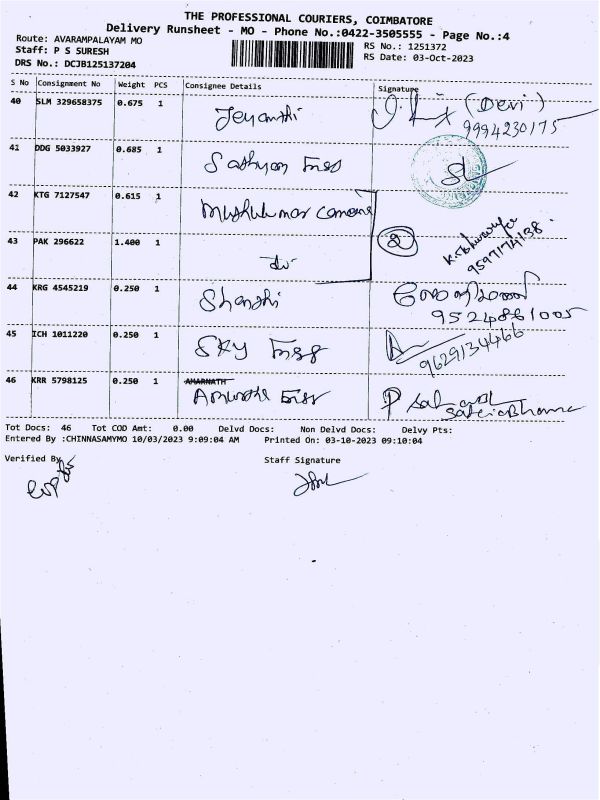 THE PROFESSIONAL COURIERS, COIMBATORE
Delivery Runsheet - MO - Phone No.:0422-3505555 - Page No.:4
Route: AVARAMPALAYAM MO
RS No.: 1251372
Staff: P S SURESH
RS Date: 03-Oct-2023
DRS No.: DCJB125137204
S No Consignment No Weight PCS Consignee Details Signature
40 SLM 329658375 0.675 1 Jeyanthi (Devi)
9994230175
41 DDG 5033927 0.685 1
42 KTG 7127547 0.615 1 Muthukumar
43 PAK 296622 1.400 1 2
9597174138
44 KRG 4545219 0.250 1 Shanthi
9524861005
45 ICH 1011220 0.250 1 SKY
9629134466
46 KRR 5798125 0.250 1 AMARNATH
Tot Docs: 46 Tot COD Amt: 0.00 Delvd Docs: Non Delvd Docs: Delvy Pts:
Entered By :CHINNASAMYMO 10/03/2023 9:09:04 AM Printed On: 03-10-2023 09:10:04
Verified By
Staff Signature